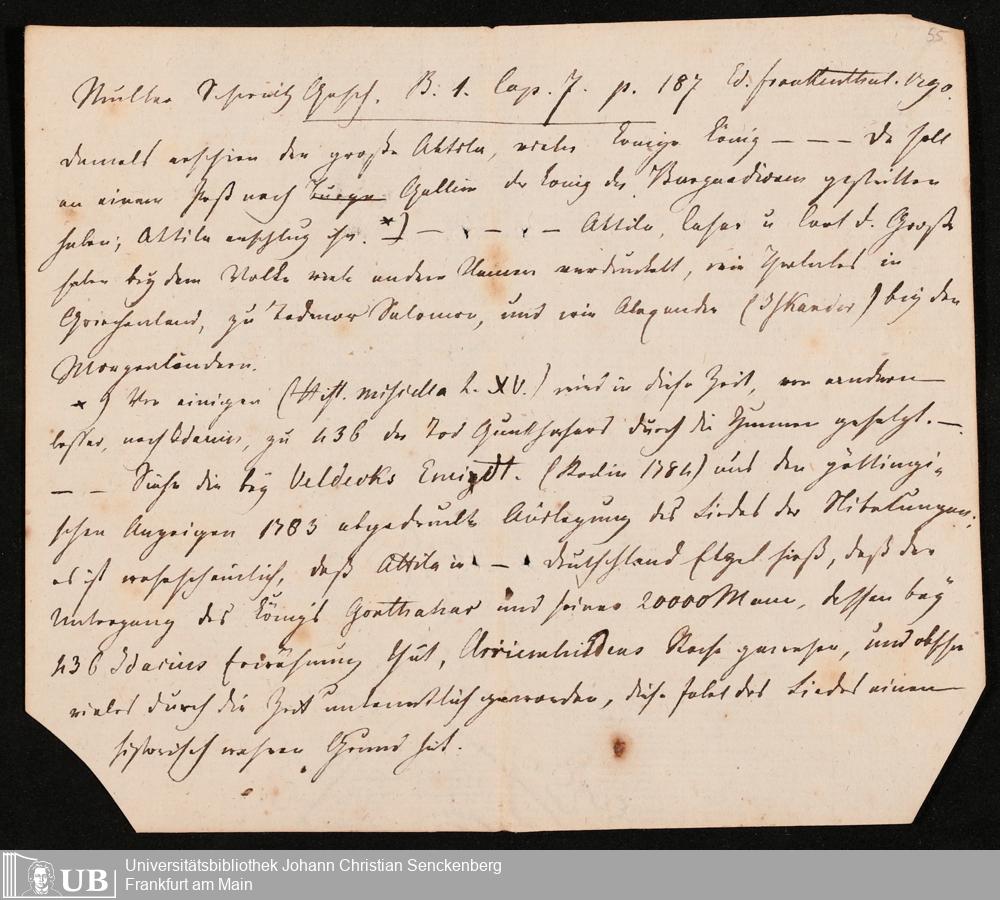 55
Muller Schweitz Gesch. B. 1. Cap. 7. p. 187 Ed. Frankenthal. 1790.
damals erschien der große Attila, vieler Könige König – – – Da soll
an einem Paß nach Gallien der König der Burgundionen gestritten
haben; Attila erschlug ihn. *) – – – – Attila, Cäsar u Carl d. Große
haben bey dem Volke viele andere Namen verdunkelt, wie Herkules in
Griechenland, zu Tadmor Salomon, und wie Alexander (Iskander) bey den
Morgenländern.
*) Von einigen (Hist. miscella L. XV.) wird in diese Zeit, von andern
besser, nach Idacius, zu 436 der Tod Gunthahars durch die Hunnen gesetzt. –
– – Siehe die bey Veldecks Eneidt. (Berlin 1784) und den göttingi-
schen Anzeigen 1783 abgedruckte Auslegung des Liedes der Nibelungen;
es ist wahrscheinlich, daß Attila in – Deutschland Etzel hieß, daß der
Untergang des Königs Gonthahar und seiner 20000 Mann, dessen bey
436 Idacius Erwähnung thut, Chriemhildens Rache gewesen, und obschon
vieles durch die Zeit unkenntlich geworden, diese Fabel des Liedes einen
historisch wahren Grund hat.
UB Universitätsbibliothek Johann Christian Senckenberg
Frankfurt am Main